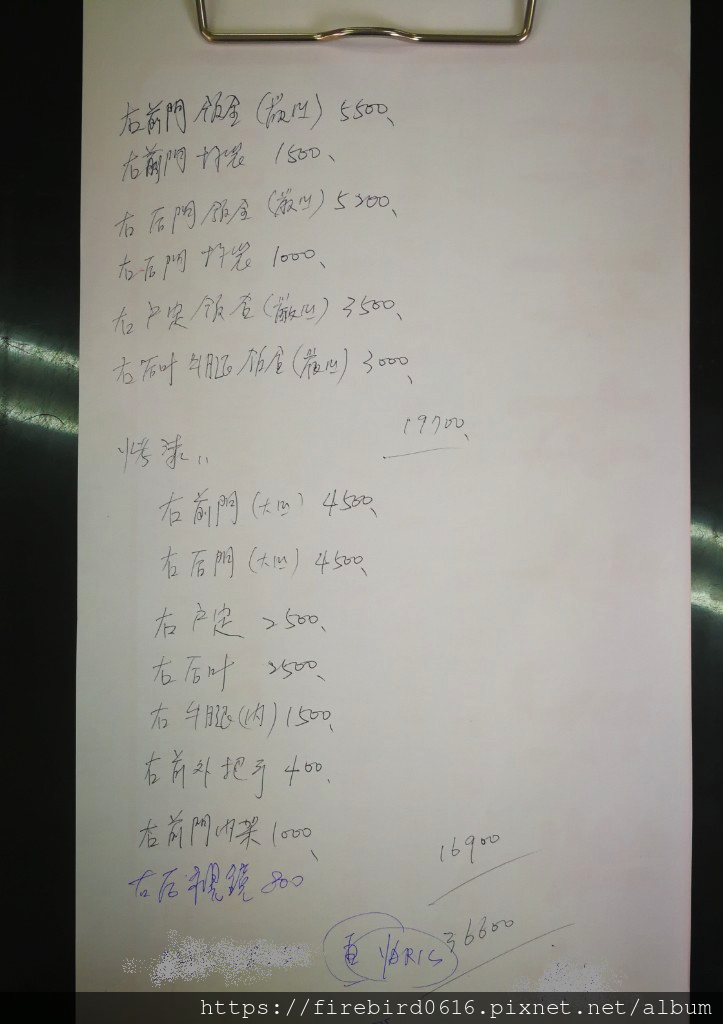 右前門鈑金(嚴凹) 5500、
右前門拆裝 1500、
右后門鈑金(嚴凹) 5200、
右后門拆裝 1000、
右户定鈑金(嚴凹) 3500、
右后叶牛腿鈑金(嚴凹) 3000、
19700、
烤漆:
右前門(大凹) 4500、
右后門(大凹) 4500、
右户定 2500、
右后叶 2500、
右牛腿(内) 1500、
右前外把手 400、
右前門内架 1000、
16900
右后視鏡 800
36600
YARIS
https://firebird0616.pixnet.net/album